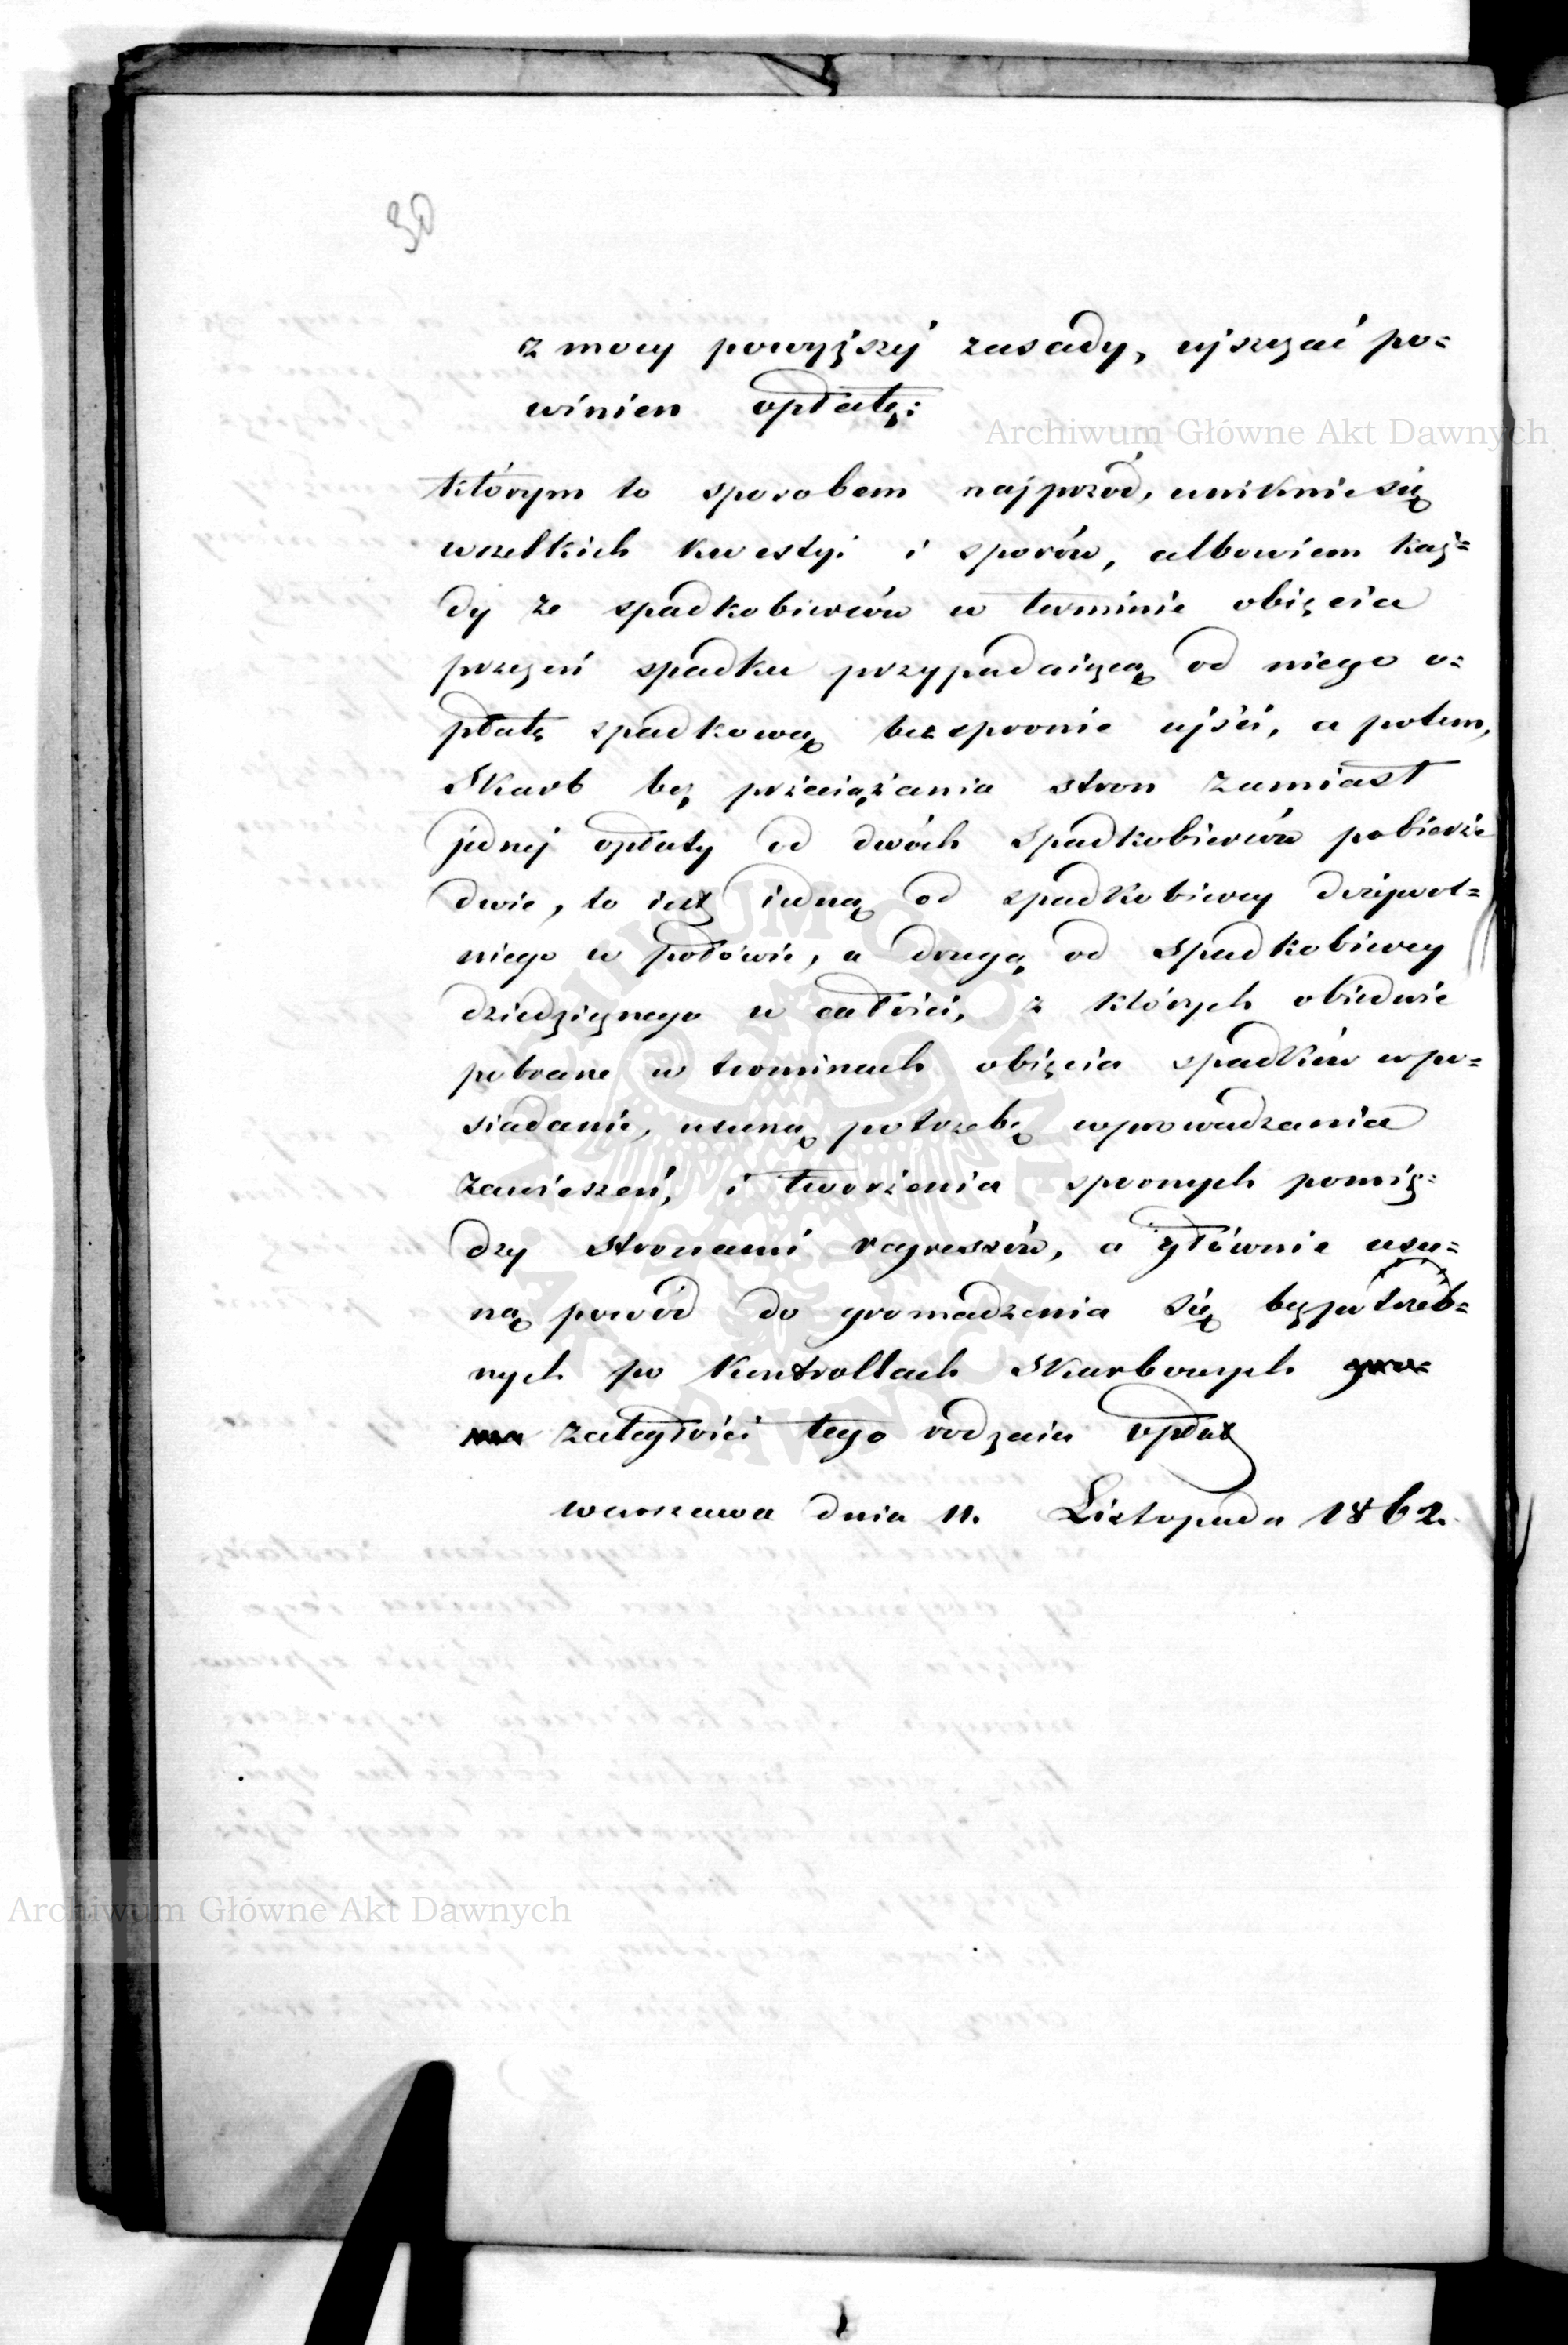 30
z mocy powyższéj zasady, uiszczać po=
winien opłatę:
Archiwum Główne Akt Dawnych
którym to sposobem najprzód, uniknie się
wszelkich kwestyi i sporów, albowiem każ=
dy ze spadkobierców w terminie obięcia
przezeń spadku przypadaiącą od niego o=
płatę spadkową bezspornie uiści, a potem,
Skarb bez przeciążania stron zamiast
jednej opłaty od dwóch spadkobierców pobierze
dwie, to iest iedną od spadkobiercy dożywot=
niego w połowie, a drugą od spadkobiercy
dziedzicznego w całości, z których obiedwie
pobrane w terminach obięcia spadków w po=
siadanie, usuną potrzebę wprowadzania
zawieszeń, i tworzenia spornych pomię=
dzy stronami regressów, a głównie usu=
ną powód do gromadzenia się bezpotrzeb=
nych po Kontrollach Skarbowych
zaległości tego rodzaiu opłat
Warszawa dnia 11. Listopada 1862.
Archiwum Główne Akt Dawnych